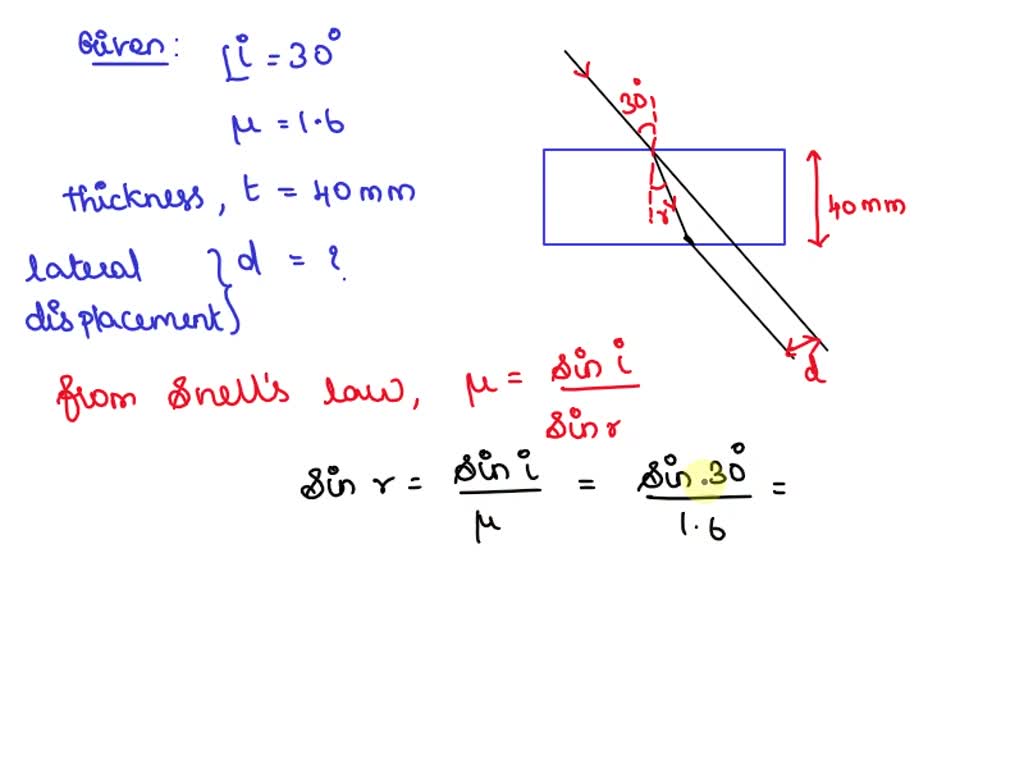 Given: ∠i = 30°
μ = 1.6
thickness, t = 40mm
lateral displacement } d = ?
30°
r
40mm
d
from Snell's law, μ = sin i / sin r
Sin r = sin i / μ = sin 30° / 1.6 =